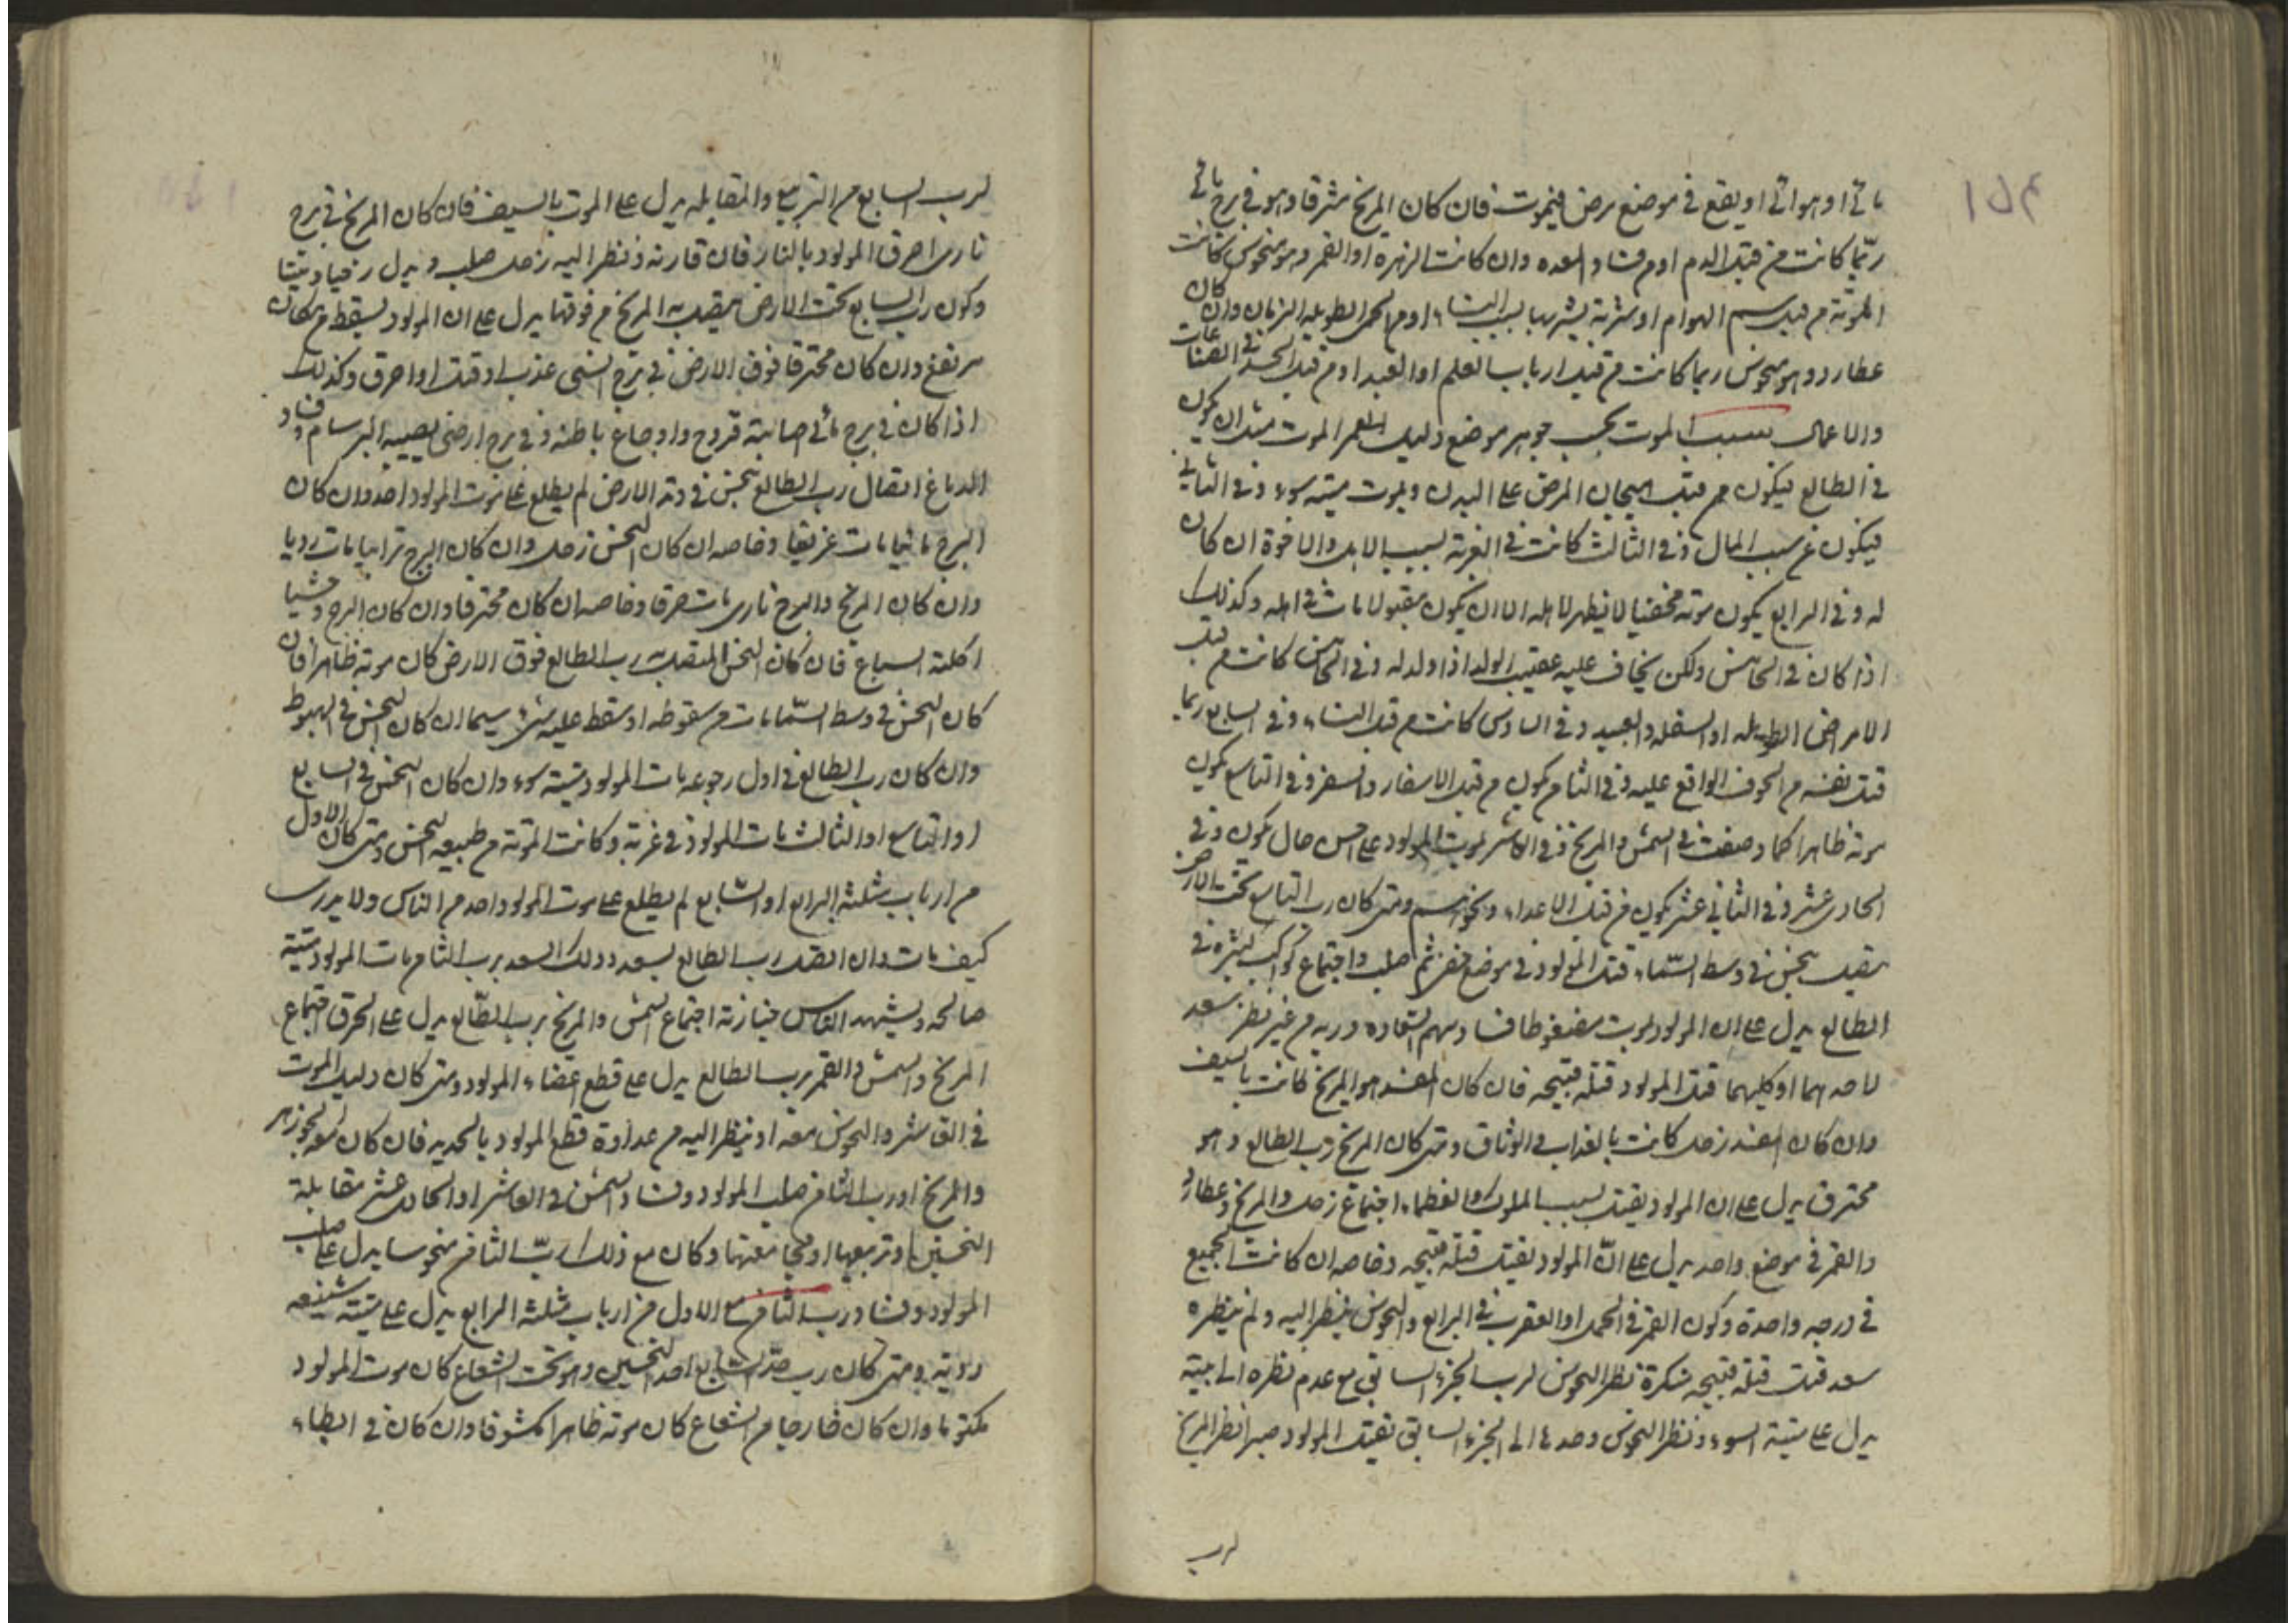 مائي او هوائي او يقع في موضع مرض فيموت فان كان المريخ مشرقا وهو في برج مائي
ربّما كانت من قبل الدم او من فساد المعده وان كانت الزهرة او القمر وهو منحوس كانت
الموتة من قبل سم الهوام او شربة يشربها بسبب النساء او من الحمى الطويله الزمان وان كان
عطارد وهو منحوس ربما كانت من قبل ارباب العلم او العبيد او من قبل الحسد في الصناعات
والاعمال سبب الموت بحسب جوهر موضع دليل العمر الموت مثل ان يكون
في الطالع فيكون من قبل هيجان المرض على البدن ويموت ميته سوء وفي الثاني
فيكون عن سبب المال وفي الثالث كانت في الغربة بسبب الاهل والاخوة ان كان
له وفي الرابع يكون موته مخفيا لا يظهر لاهله الا ان يكون مقبولا مات في اهله وكذلك
اذا كان في الخامس ولكن يخاف عليه عقيب الولد اذا ولد له وفي الخامس كانت من قبل
الامراض الطويله او السفله والعبيد وفي السادس كانت من قبل النساء وفي السابع ربما
قتل نفسه من الخوف الواقع عليه وفي الثامن يكون من قبل الاسفار والسفر وفي التاسع يكون
موته ظاهرا كما وصفت في الشمس والمريخ وفي العاشر يموت المولود على احسن حال يكون وفي
الحادي عشر وفي الثاني عشر يكون من قبل الاعداء ونحوهم ومتى كان رب التاسع تحت الارض
متصل بنحس في وسط السّماء قتل المولود في موضع قفر ثم صلب واجتماع كواكب كثيره في
الطالع يدل على ان المولود يموت مضغوطا فساد سهم السّعاده وربه من غير نظر سعد
لاحدهما او كليهما قتل المولود قتلة قبيحه فان كان المفسد هو المريخ كانت بالسيف
وان كان المفسد زحل كانت بالعذاب والوثاق ومتى كان المريخ رب الطالع وهو
محترق يدل على ان المولود يقتل بسبب الملوك والعظماء اجتماع زحل والمريخ وعطارد
والقمر في موضع واحد يدل على انّ المولود يقتل قتلة قبيحه وخاصه ان كانت الجميع
في درجه واحدة وكون القمر في الحمل او العقرب في الرابع والنحوس ينظر اليه ولم ينظره
سعد قتل قتلة قبيحه منكرة نظر النحوس لرب الجزء السابق مع عدم نظره الى بيته
يدل على ميتة السوء ونظر النحوس وحدها الى الجزء السابق يقتل المولود صبرا نظر المريخ
لرب
لرب السابع من التربيع والمقابله يدل على الموت بالسيف فان كان المريخ في برج
ناري احرق المولود بالنار فان قارنه ونظر اليه زحل صلب
وكون رب السابع تحت الارض يتصل به المريخ من فوقها يدل على ان المولود يسقط من مكان
مرتفع وان كان محترقا فوق الارض في برج انسي عذب او قتل او احرق وكذلك
اذا كان في برج مائي اصابته قروح واوجاع باطنه وفي برج ارضي يصيبه البرسام وفساد
الدماغ اتصال رب الطالع بنحس في وتد الارض لم يطلع على موت المولود احد وان كان
البرج مائيا مات غريقا وخاصه ان كان النحس زحل وان كان البرج ترابيا مات رديا
وان كان المريخ والبرج ناري مات حرقا وخاصه ان كان محترقا وان كان البرج وحشيا
اكلته السباع فان كان النحس المتصل به رب الطالع فوق الارض كان موته ظاهرا فان
كان النحس في وسط السّماء مات من سقوطه او سقط عليه شيء سيما ان كان النحس في الهبوط
وان كان رب الطالع في اول رجوعه مات المولود ميتة سوء وان كان النحس في السابع
او التاسع او الثالث مات المولود في غربة وكانت الموتة من طبيعه النحس ومتى كان الاول
من ارباب مثلثة الرابع او السّابع لم يطلع على موت المولود احد من الناس ولا يدرى
كيف مات وان اتصل رب الطالع بسعد وذلك السعد برب الثامن مات المولود ميتة
صالحه ويشهد الناس جنازته اجتماع الشمس والمريخ برب الطّالع يدل على الحرق اجتماع
المريخ والشمس والقمر برب الطالع يدل على قطع اعضاء المولود ومتى كان دليل الموت
في العاشر والنحوس معه او ينظر اليه من عداوة قطع المولود بالحديد فان كان معه الجوزهر
والمريخ او رب الثامن صلب المولود وفساد الشمس في العاشر او الحادي عشر مقابلة
النحسين او تربيعها او مجامعتها وكان مع ذلك ربّ الثامن منحوسا يدل على صلب
المولود وفساد رب الثامن مع الاول من ارباب مثلثة الرابع يدل على ميتة شنيعه
رديه ومتى كان رب حدّ السّابع احد النحسين وهو تحت الشعاع كان موت المولود
مكتوما وان كان خارجا من الشعاع كان موته ظاهرا مكشوفا وان كان في الطالع